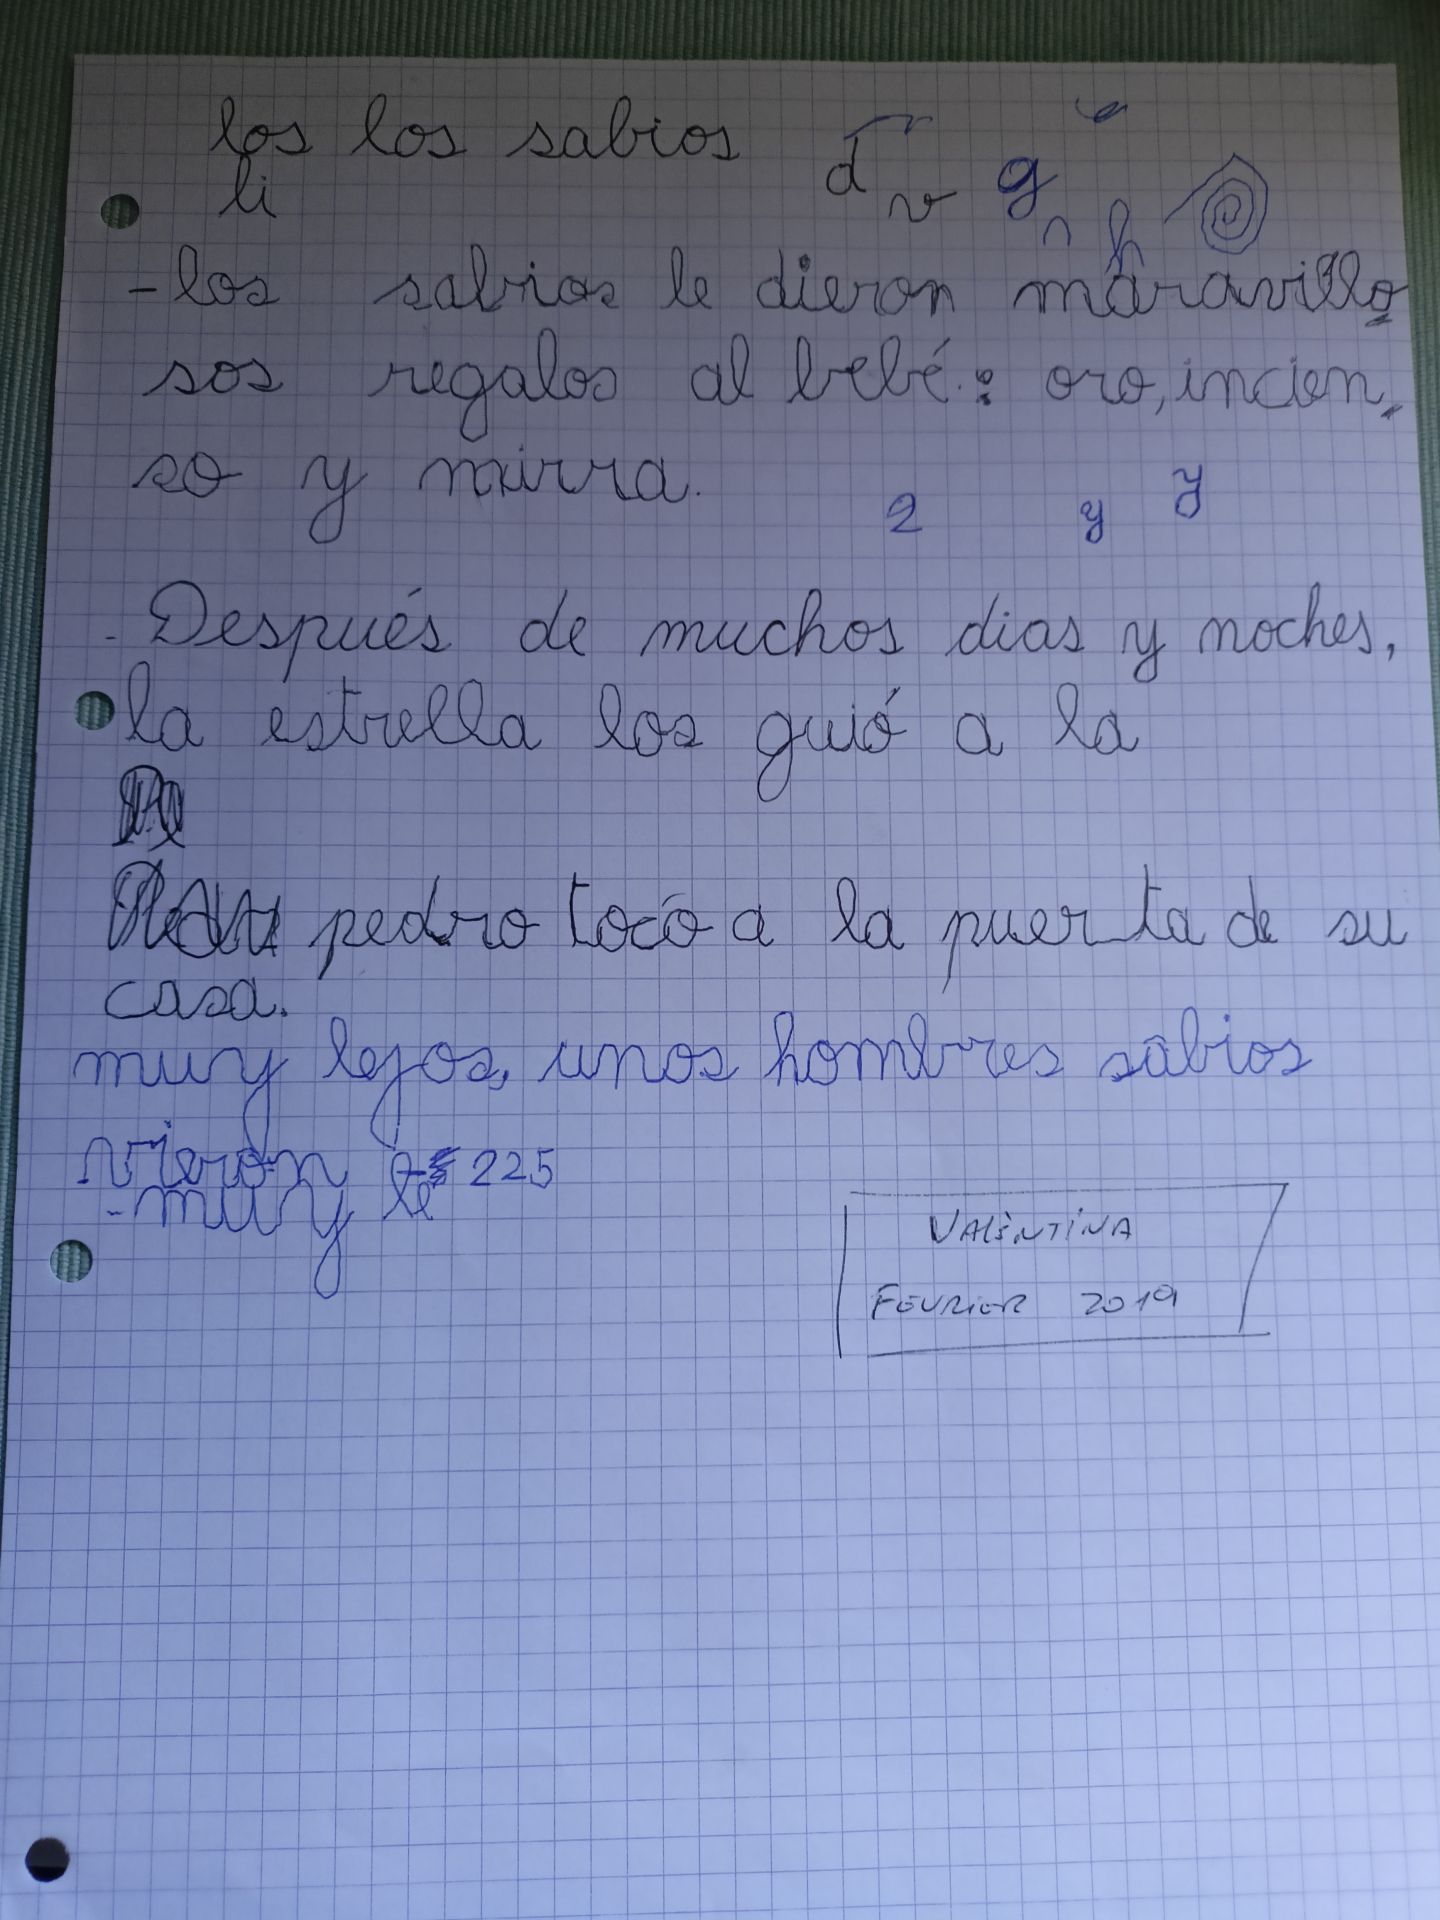 los los sabios d v g
li n h
- los sabios le dieron maravillo
sos regalos al bebé : oro, incien
so y mirra.
2 y y
- Después de muchos dias y noches,
la estrella los guió a la
pedro tocó a la puerta de su
casa.
muy lejos, unos hombres sabios
vieron 225
- muy le
VALENTINA
FEVRIER 2019